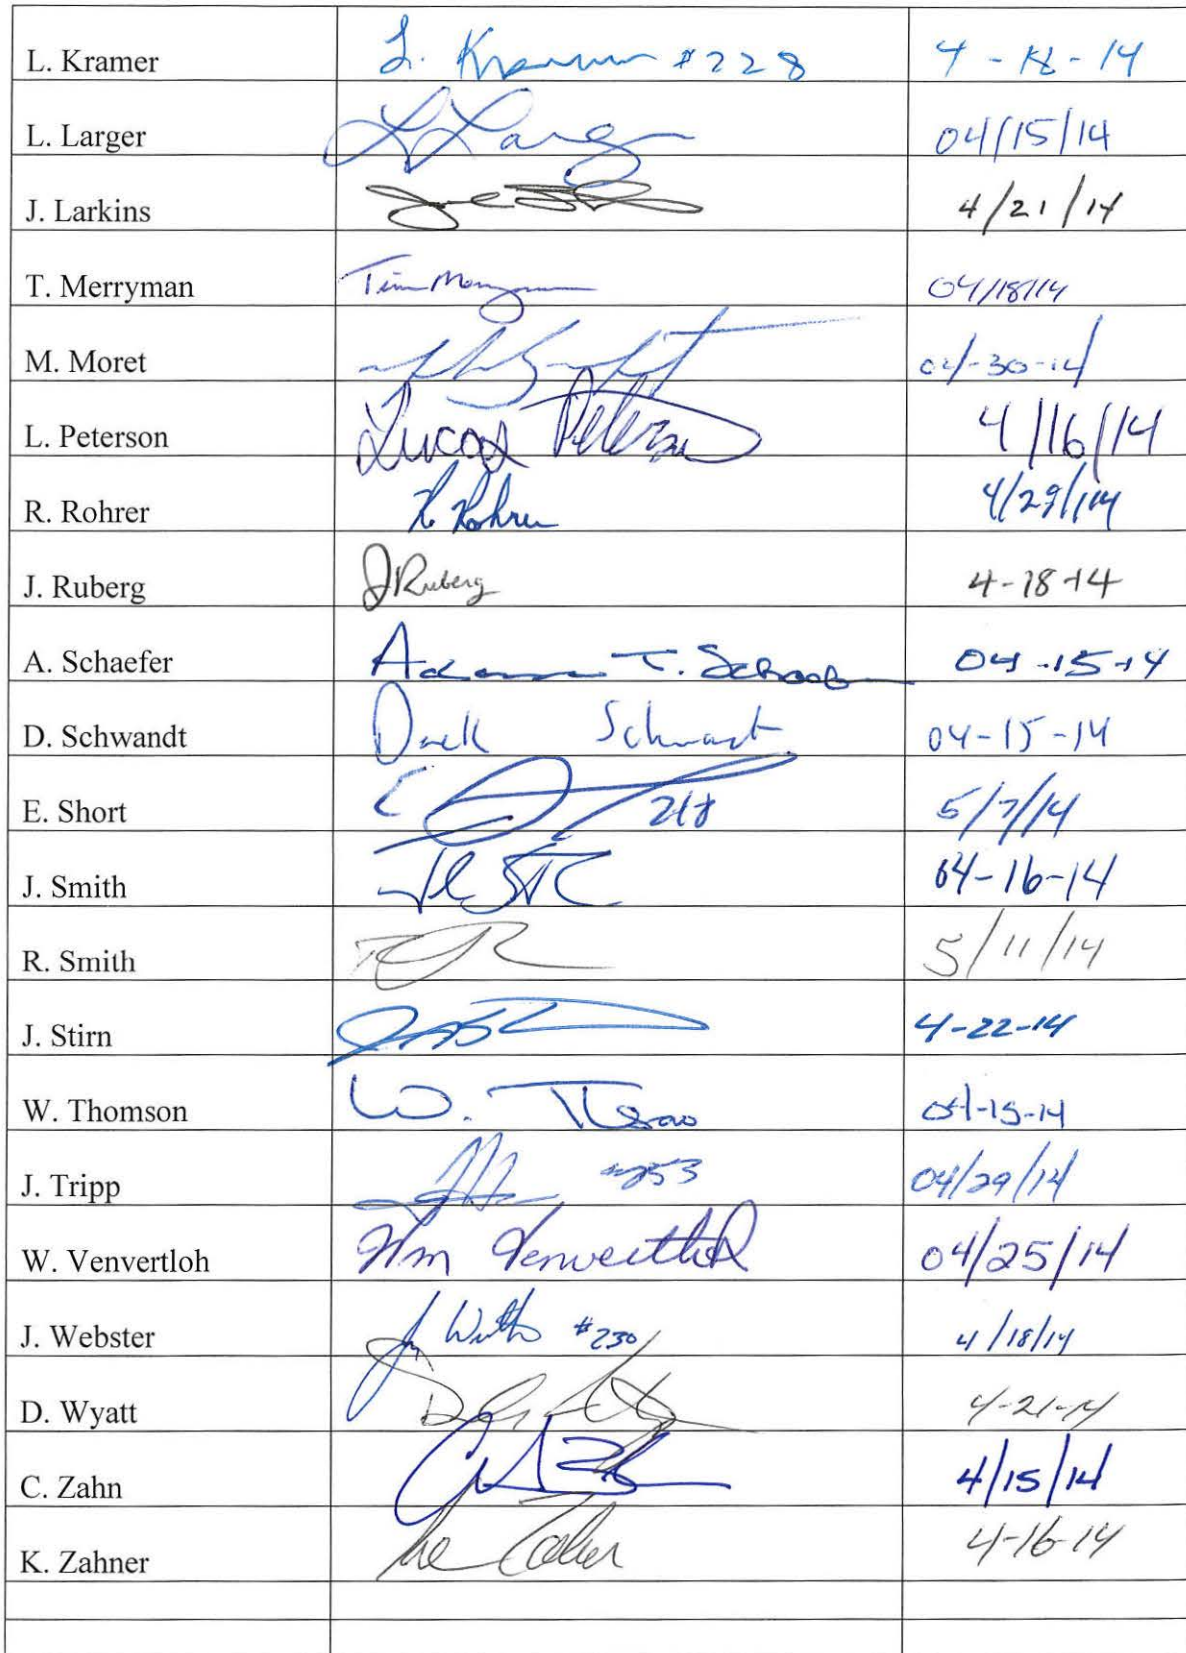 L. Kramer L. Kramer #228 4-18-14
L. Larger L Larger 04/15/14
J. Larkins 4/21/14
T. Merryman Tim Merryman 04/18/14
M. Moret 04-30-14
L. Peterson Lucas Peterson 4/16/14
R. Rohrer R. Rohrer 4/29/14
J. Ruberg J Ruberg 4-18-14
A. Schaefer Adam T. Schaefer 04-15-14
D. Schwandt Schwandt 04-15-14
E. Short 218 5/7/14
J. Smith 04-16-14
R. Smith 5/11/14
J. Stirn 4-22-14
W. Thomson W. 04-15-14
J. Tripp 253 04/29/14
W. Venvertloh Wm Venvertloh 04/25/14
J. Webster #230 4/18/14
D. Wyatt 4-21-14
C. Zahn 4/15/14
K. Zahner 4-16-14